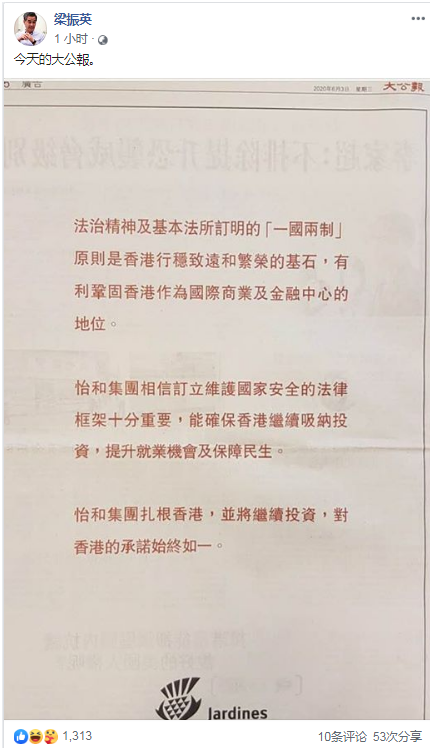 梁振英
1 小时
今天的大公報。
廣告
2020年6月3日 星期三 大公報
李家超：不排除提升恐襲威脅級別
法治精神及基本法所訂明的「一國兩制」
原則是香港行穩致遠和繁榮的基石，有
利鞏固香港作為國際商業及金融中心的
地位。
怡和集團相信訂立維護國家安全的法律
框架十分重要，能確保香港繼續吸納投
資，提升就業機會及保障民生。
怡和集團扎根香港，並將繼續投資，對
香港的承諾始終如一。
Jardines
1,313
10条评论 53次分享